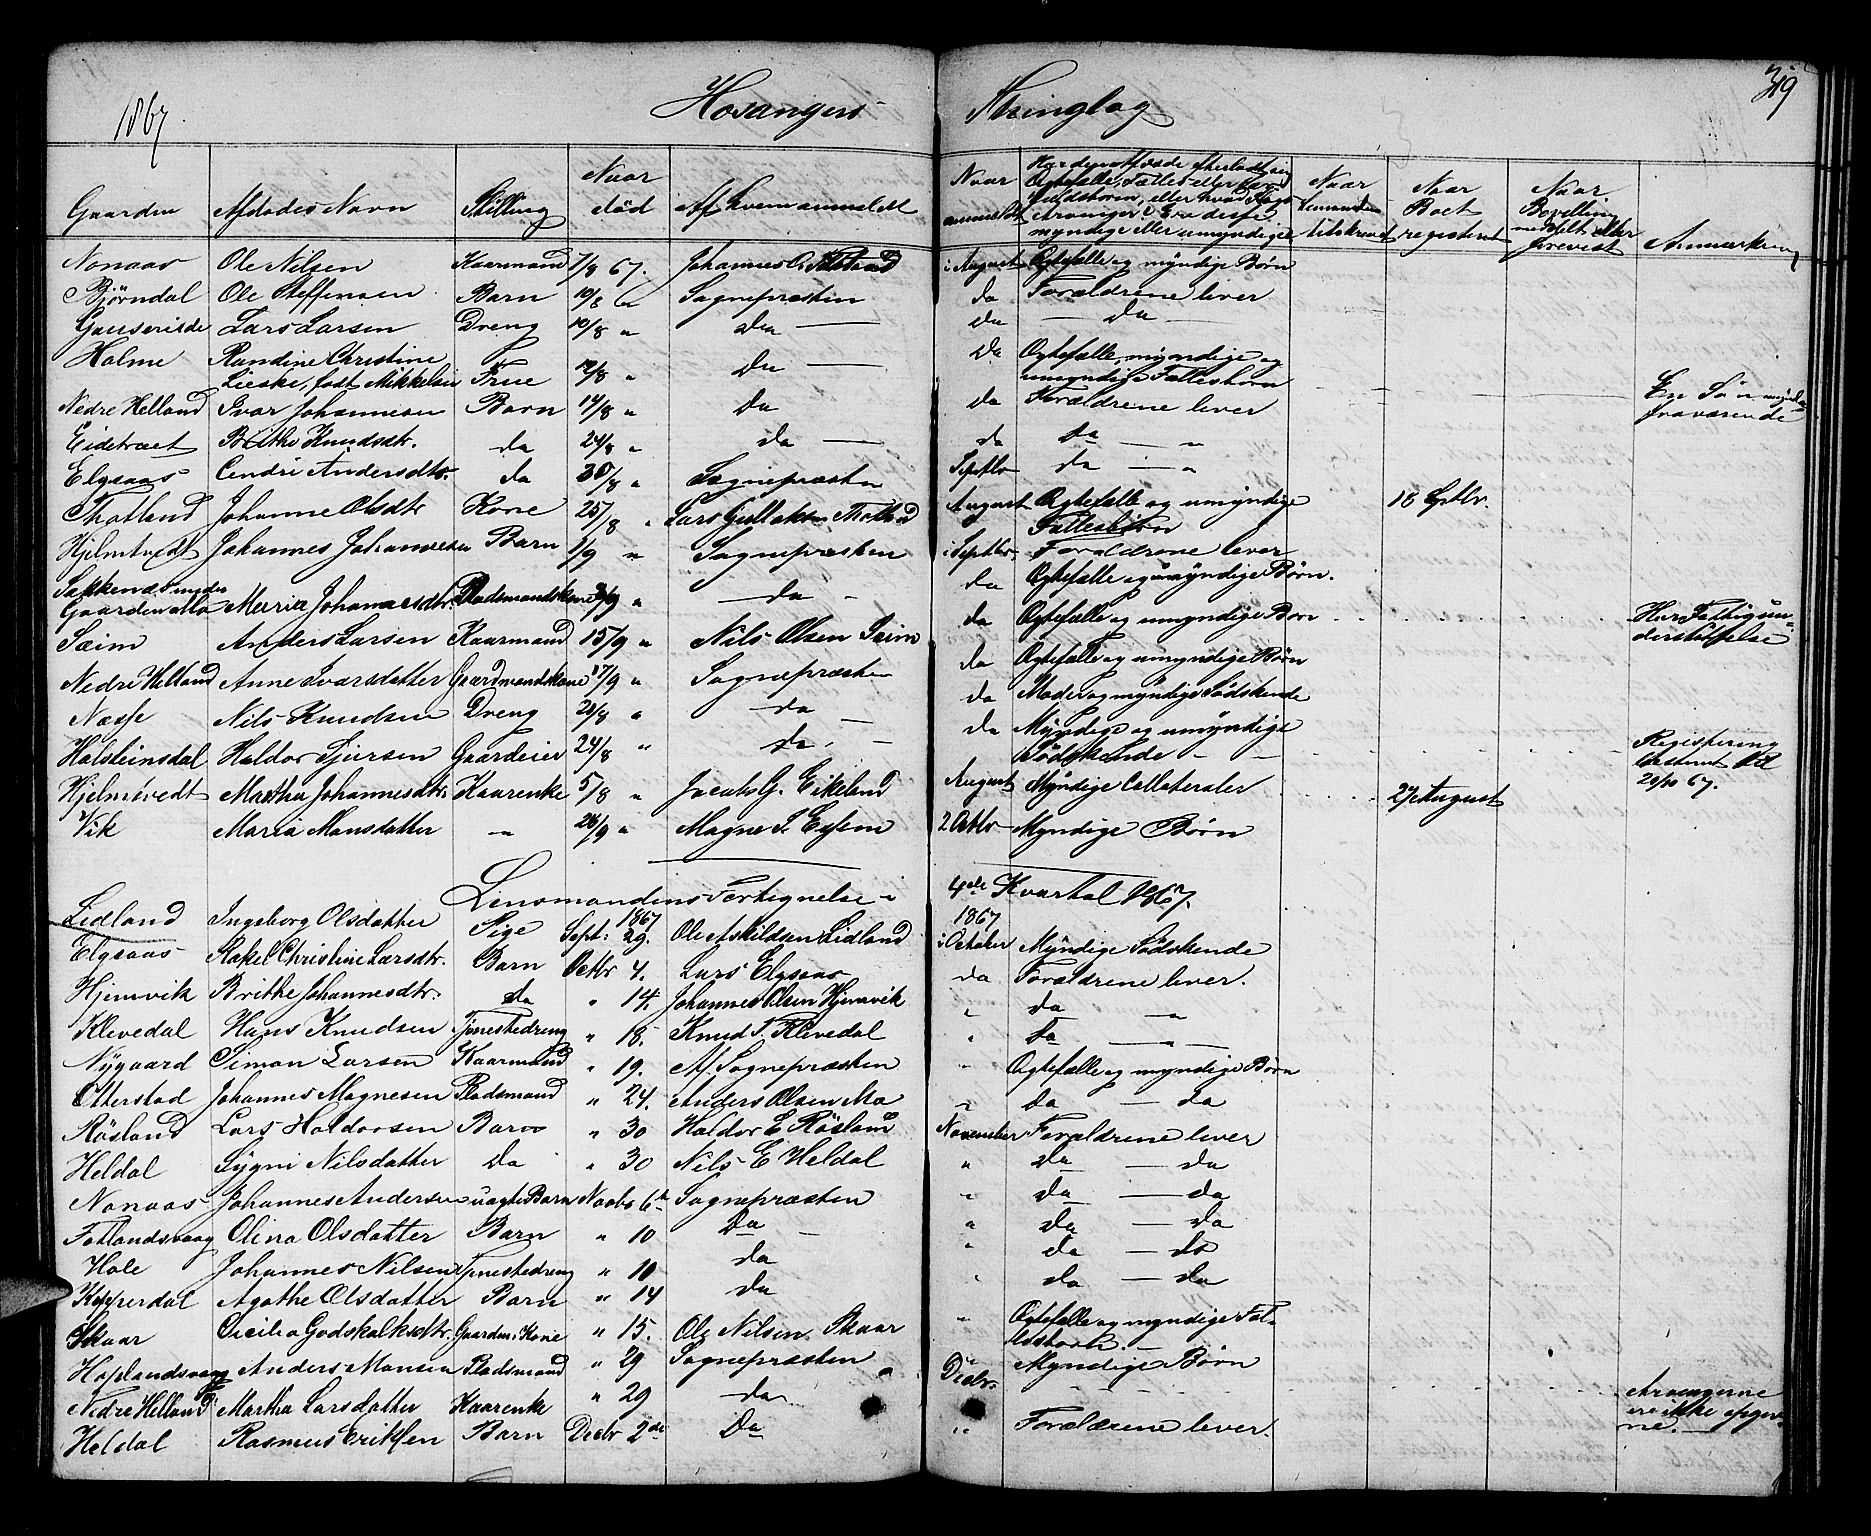 39
1867. Hosangers Thinglag
Gaarden | Afdødes Navn | Stilling | Naar død | Af hvem anmeldt | Naar anmeldt | Har den Afdøde efterladt sig Ægtefælle, Fælles eller Særkuldsbørn, eller hvad slags Arvinger? Ere disse myndige eller umyndige | Naar tilskrevet | Naar Boet registeret | Naar Bevilling meddelt eller forevist | Anmærkning
Nonaas | Ole Nilsen | Kaarmand | 7/8 67. | Johannes O. | i August | Ægtefælle og myndige Børn
Bjørndal | Ole Steffensen | Barn | 10/8 " | Sognepræsten | da | Forældrene lever
Lars Larsen | Dreng | 10/8 " | da — | da | — da —
Holme | Randine Christine Lieske, født Mikkelsen | Frue | 12/8 " | da — | da | Ægtefælle, myndige og umyndige Fællesbørn
Nedre Helland | Ivar Johannesen | Barn | 14/8 " | da | da | Forældrene lever | En Søn myndig fraværende
Eidetræet | Brithe Knudsdtr. | da | 24/8 " | da — | da | da — "
Elgsaas | Cendri Andersdtr. | da | 30/8 " | Sognepræsten | Septbr | da — "
Thotland | Johanne Olsdtr | Kone | 25/8 " | Lars Gullaksen Thotland | August | Ægtefælle og umyndige Fællesbørn | 18 Septbr.
Hjelmtvedt | Johannes Johannesen | Barn | 1/9 " | Sognepræsten | i Septbr. | Forældrene lever
Gaarden Maria Johannesdtr. | Pladsmandskone | /9 " | — da - | da | Ægtefælle og umyndige Børn.
Sæim | Anders Larsen | Kaarmand | 15/9 " | Nils Olsen Sæim | da | Ægtefælle og umyndige Børn | Har Fattigunderstøttelse
Nedre Helland | Anne Ivarsdatter | Gaardmandskone | 17/9 " | Sognepræsten | da | Ægtefælle og umyndige Børn
Næsse | Nils Knudsen | Dreng | 21/8 " | da — | da | Moder og myndige Sødskende
Holsteinsdal | Haldor Sjursen | Gaardeier | 24/8 " | da. - | da | Myndige og umyndige Sødskende - - | Registering 20/10 67.
Hjelmtvedt | Martha Johannesdtr. | Kaarenke | 5/8 " | Jacob G. Eikeland | August | Myndige Collateraler | 27 August
Vik | Maria Monsdatter | — " | 26/9 " | Magne T. | 2 Octbr | Myndige Børn
Lensmandens Fortegnelse i 4de Kvartal 1867.
Lidland | Ingeborg Olsdatter | Pige | 1867 Sept: 29. | Ole Askildsen Lidland | 1867 i October | Myndige Sødskende
Elgsaas | Rakel Christine Larsdtr. | Barn | Octbr 4. | Lars Elgsaas | da | Forældrene lever.
Hjemvik | Brithe Johannesdtr. | da | " 14. | Johannes Olsen Hjemvik | " | da — "
Klevedal | Hans Knudsen | Tjenestedreng | " 18. | Knud T. Klevedal | " | da — " —
Nygaard | Simon Larsen | Kaarmand | " 19. | Af Sognepræsten | " | Ægtefælle og myndige Børn
Otterstad | Johannes Magnesen | Pladsmand | " 24. | Anders Olsen Mo | " | da — da
Røsland | Lars Haldorsen | Barn | " 30 | Haldor E Røsland | November | Forældrene lever
Heldal | Sygni Nilsdatter | da | " 30 | Nils E Heldal | " | da — da
Nonaas | Johannes Andersen | uægte Barn | Novbr 6te | Sognepræsten | " | da — da
Fotlandsvaag | Olina Olsdatter | Barn | " 10 | da — | " | da — da
Hole | Johannes Nilsen | Tjenestedreng | " 10 | da | " | da — da
Kopperdal | Agathe Olsdatter | Barn | " 14 | da | " | da — da
Skaar | Cicilia Godskalksdtr. | Gaardm: Kone | " 15. | Ole Nilsen Skaar | " | Ægtefælle og myndige Fællesbørn. -
Hoplandsvaag | Anders Monsen | Pladsmand | " 29 | Sognepræsten | " | Myndige Børn
Nedre Helland | Martha Larsdatter | Kaarenke | " 29 | da | Decbr. | - - - | Arvingerne ere ikke opgivne.
Heldal | Rasmus Eriksen | Barn | Decbr 2de | Da | " | Forældrene lever.